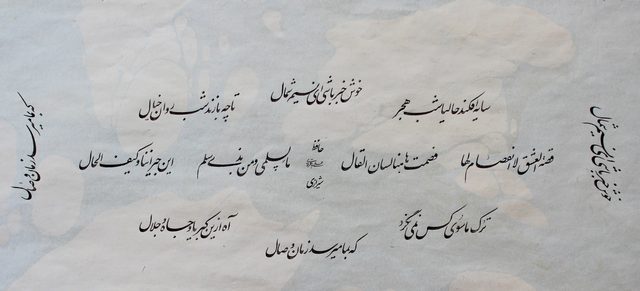 خوش خبر باشی ای نسیم شمال
سایه افکند حالیا شب هجر
تا چه بازند شب روان خیال
خوش خبر باشی ای نسیم شمال
قصة العشق لا انفصام لها
فصمت ها هنا لسان القال
حافظ
شیرازی
ما لسلمی و من بذی سلم
این جیراننا و کیف الحال
که بما میرسد زمان وصال
ترک ما سوی کس نمی نگرد
آه ازین کبریا و جاه و جلال
که بما میرسد زمان وصال